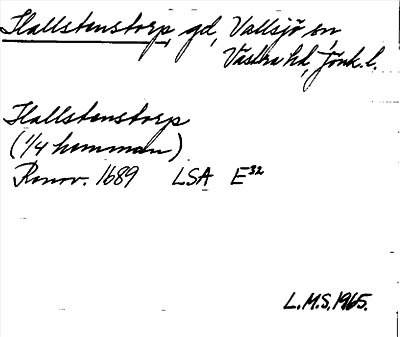 Hallstenstorp, gd, Vallsjö sn,
Västra hd, Jönk. l.
Hallstenstorp
(1/4 hemman)
Renov. 1689 LSA E³²
L.M.S. 1965.